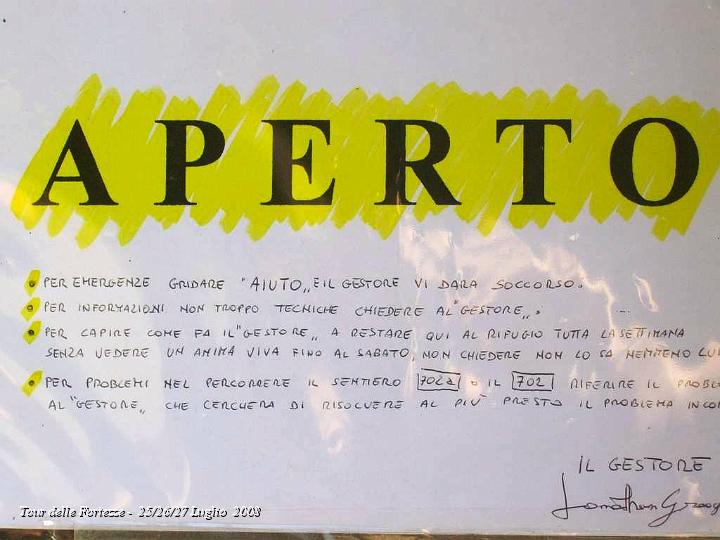 APERTO
PER EMERGENZE GRIDARE "AIUTO„ E IL GESTORE VI DARA SOCCORSO.
PER INFORMAZIONI NON TROPPO TECNICHE CHIEDERE AL "GESTORE„.
PER CAPIRE COME FA IL "GESTORE„ A RESTARE QUI AL RIFUGIO TUTTA LA SETTIMANA
SENZA VEDERE UN ANIMA VIVA FINO AL SABATO, NON CHIEDERE NON LO SA NEMMENO LUI
PER PROBLEMI NEL PERCORRERE IL SENTIERO 702a O IL 702 RIFERIRE IL PROBL
AL "GESTORE„ CHE CERCHERA DI RISOLVERE AL PIU' PRESTO IL PROBLEMA INCO
IL GESTORE
Jonathan
Tour delle Fortezze - 25/26/27 Luglio 2008